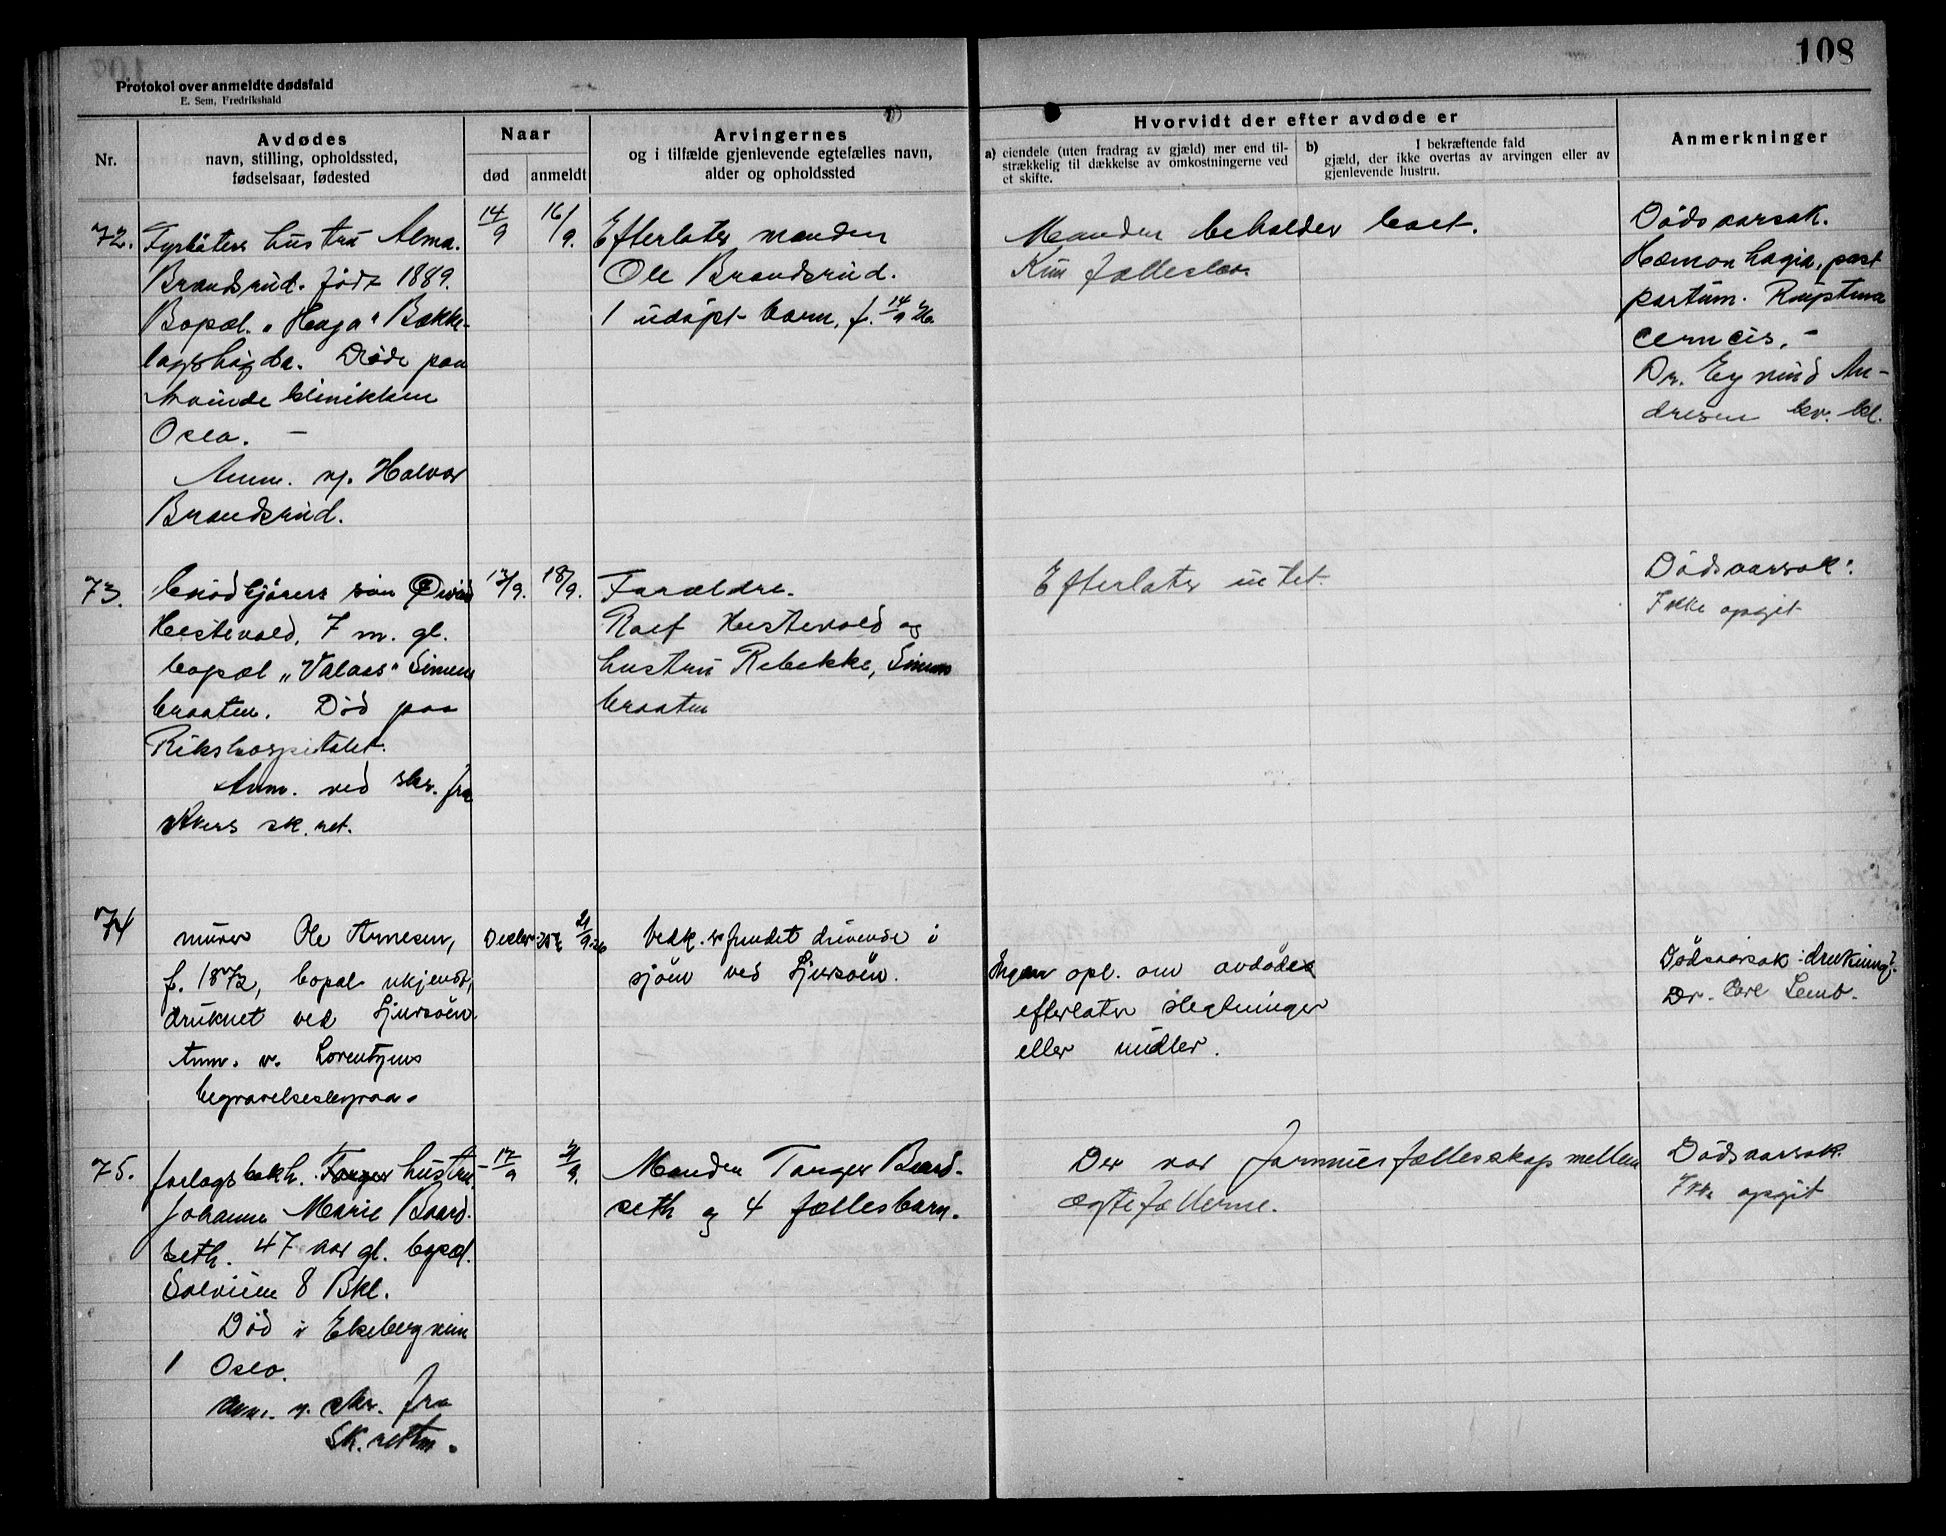 108
Protokol over anmeldte dødsfald
E. Sem, Fredrikshald
Nr.
Avdødes
navn, stilling, opholdssted,
fødselsaar, fødested
Naar
død
anmeldt
Arvingernes
og i tilfælde gjenlevende egtefælles navn,
alder og opholdssted
Hvorvidt der efter avdøde er
a) eiendele (uten fradrag av gjæld) mer end til-
strækkelig til dækkelse av omkostningerne ved
et skifte.
b) I bekræftende fald
gjæld, der ikke overtas av arvingen eller av
gjenlevende hustru.
Anmerkninger
72.
Fyrbøters hustru Alma
Brandsrud. født 1889.
Bopæl. "Haga" Bække-
lagshøgda. Døde paa
kvindeklinikken
Oslo. —
Anm. v. Halvor
Brandsrud.
14/9
16/9.
Efterlater manden
Ole Brandsrud.
1 udøpt barn, f. 14/9 26.
Manden beholder boet.
Kun fællesbarn
Dødsaarsak.
Hæmorrhagia, post
partum. Ruptura
cervicis. –
Dr. Eyvind An-
dresen kv. kl.
73.
søn
Hestevold, 7 m. gl.
bopæl "Valaas" Simens
braaten. Død paa
Rikshospitalet.
Anm. ved skr. fra
Akers sk. ret.
13/9.
18/9.
Forældre.
Rolf Hestevold og
hustru Rebekke, Simens
braaten
Efterlater intet.
Dødsaarsak:
Ikke opgit
74
murer Ole Arnesen,
f. 1872, bopæl ukjendt,
druknet ved Ljursøen.
Anm. v. Lorentzens
begravelsesbyraa.
Decbr. 25
21/9.26
Vedk. er fundet drivende i
sjöen ved Ljursøen.
Ingen opl. om avdøde
efterlater slegtninger
eller midler.
Dødsaarsak: drukning?
Dr. Carl Semb.
75.
forlagsbokh. Tanger hustru
Johanne Marie Baard-
seth. 47 aar gl. bopæl.
Solveien 8 Bkl.
Død i Ekebergveien
1 Oslo.
Anm. v. skr. fra
Sk. retten.
17/9
21/9.
Manden Tanger Baard-
seth og 4 fællesbarn.
Der var formuesfællesskap mellem
ægtefællerne.
Dødsaarsak.
Ikke opgit